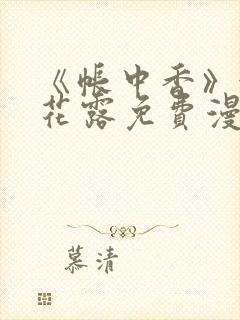 《帐中香》
花露免费漫
慕清